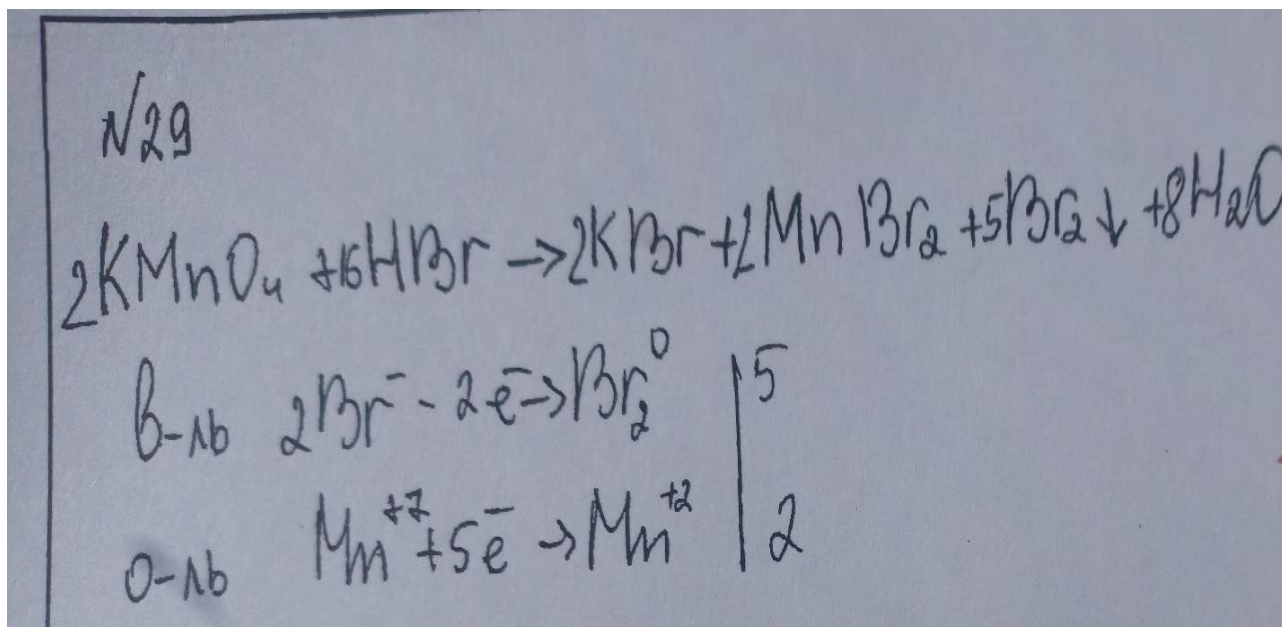 №29
2KMnO₄ +16HBr → 2KBr+2MnBr₂ +5Br₂↓ +8H₂O
в-ль 2Br⁻ - 2e̅→Br₂⁰ | 5
о-ль Mn⁺⁷+5e̅ → Mn⁺² | 2